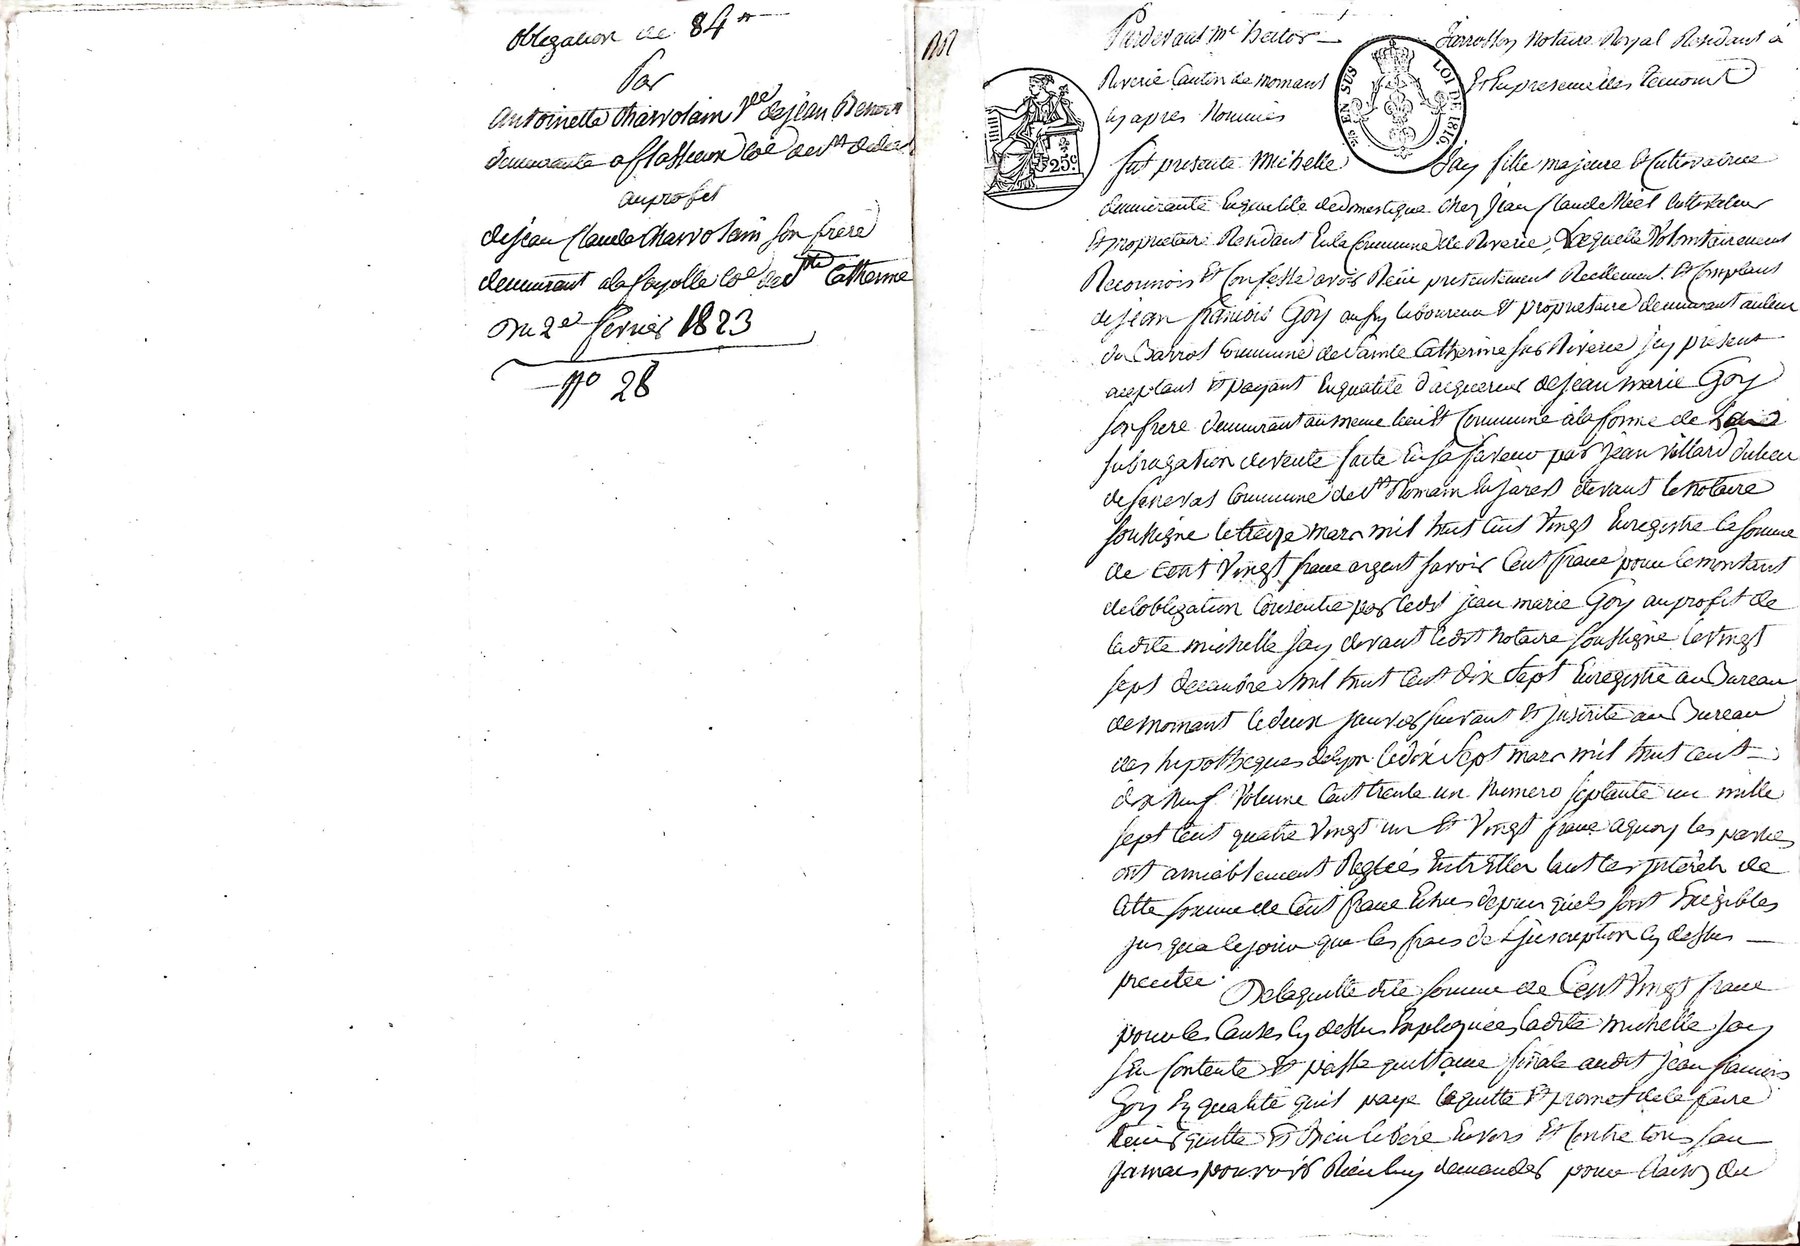 obligation de 84 ff
Par
antoinette Charvolain Vee de jean
demeurante a flassieux Coe de St
au profit
de jean Claude Charvolain son frere
demeurant a la fayolle Coe de Ste Catherine
Du 2er fevrier 1823
No 28
Pardevant Me hector Jarrosson Notaire Royal Residant à
Riverie Canton de mornant Et En presence des temoins
cy apres Nommés
fut presente michelle Jay fille majeure Et Cultivatrice
demeurante En qualité de domestique chez Jean Claude Cultivateur
Et proprietaire Residant En la Commune de Riverie, Laquelle Volontairement
Reconnois Et Confesse avoir Recu presentement Reellement Et Comptant
de jean francois Goy aussy laboureur Et proprietaire demeurant au lieu
du Barrot Commune de Sainte Catherine sur Riverie jcy présent
acceptant Et payant En qualité d'acquereur de jean marie Goy
son frere demeurant au meme lieu Et Commune à la forme de
subrogation de vente faite En sa faveur par jean Villard du lieu
de Commune de St Romain En jarest devant le Notaire
soussigné le treize mars mil huit Cent Vingt Enregistré la somme
de Cent Vingt franc argent savoir Cent franc pour le montant
de lobligation Consentie par ledit jean marie Goy au profit de
ladite michelle jay devant ledit Notaire soussigné le vingt
sept decembre mil huit Cent dix sept Enregistré au Bureau
de mornant le deux janvier suivant Et jnscrite au Bureau
des hipotheques de lyon le dix sept mars mil huit Cent
dix Neuf Volume Cent trente un Numero septante un mille
sept Cent quatre Vingt un Et Vingt franc a quoy les parties
ont amiablement Reglés Entr'Elles tant les jnterets de
Cette somme de Cent franc Echus depuis qu'ils sont Exigibles
jus qua le jour que les frais de L'jnscription cy dessus
precitée.
De laquelle dite somme de Cent Vingt franc
pour les Causes cy dessus Expliquées ladite michelle jay
sen Contente Et passe quittance finale audit jean francois
Goy En qualité quil paye laquitte Et promet de le faire
tenir quitte Et Bien liberé Envers Et Contre tous sans
jamais pouvoir Rien luy demander pour Raison du
EN SUS
LOI DE 1816
25c.